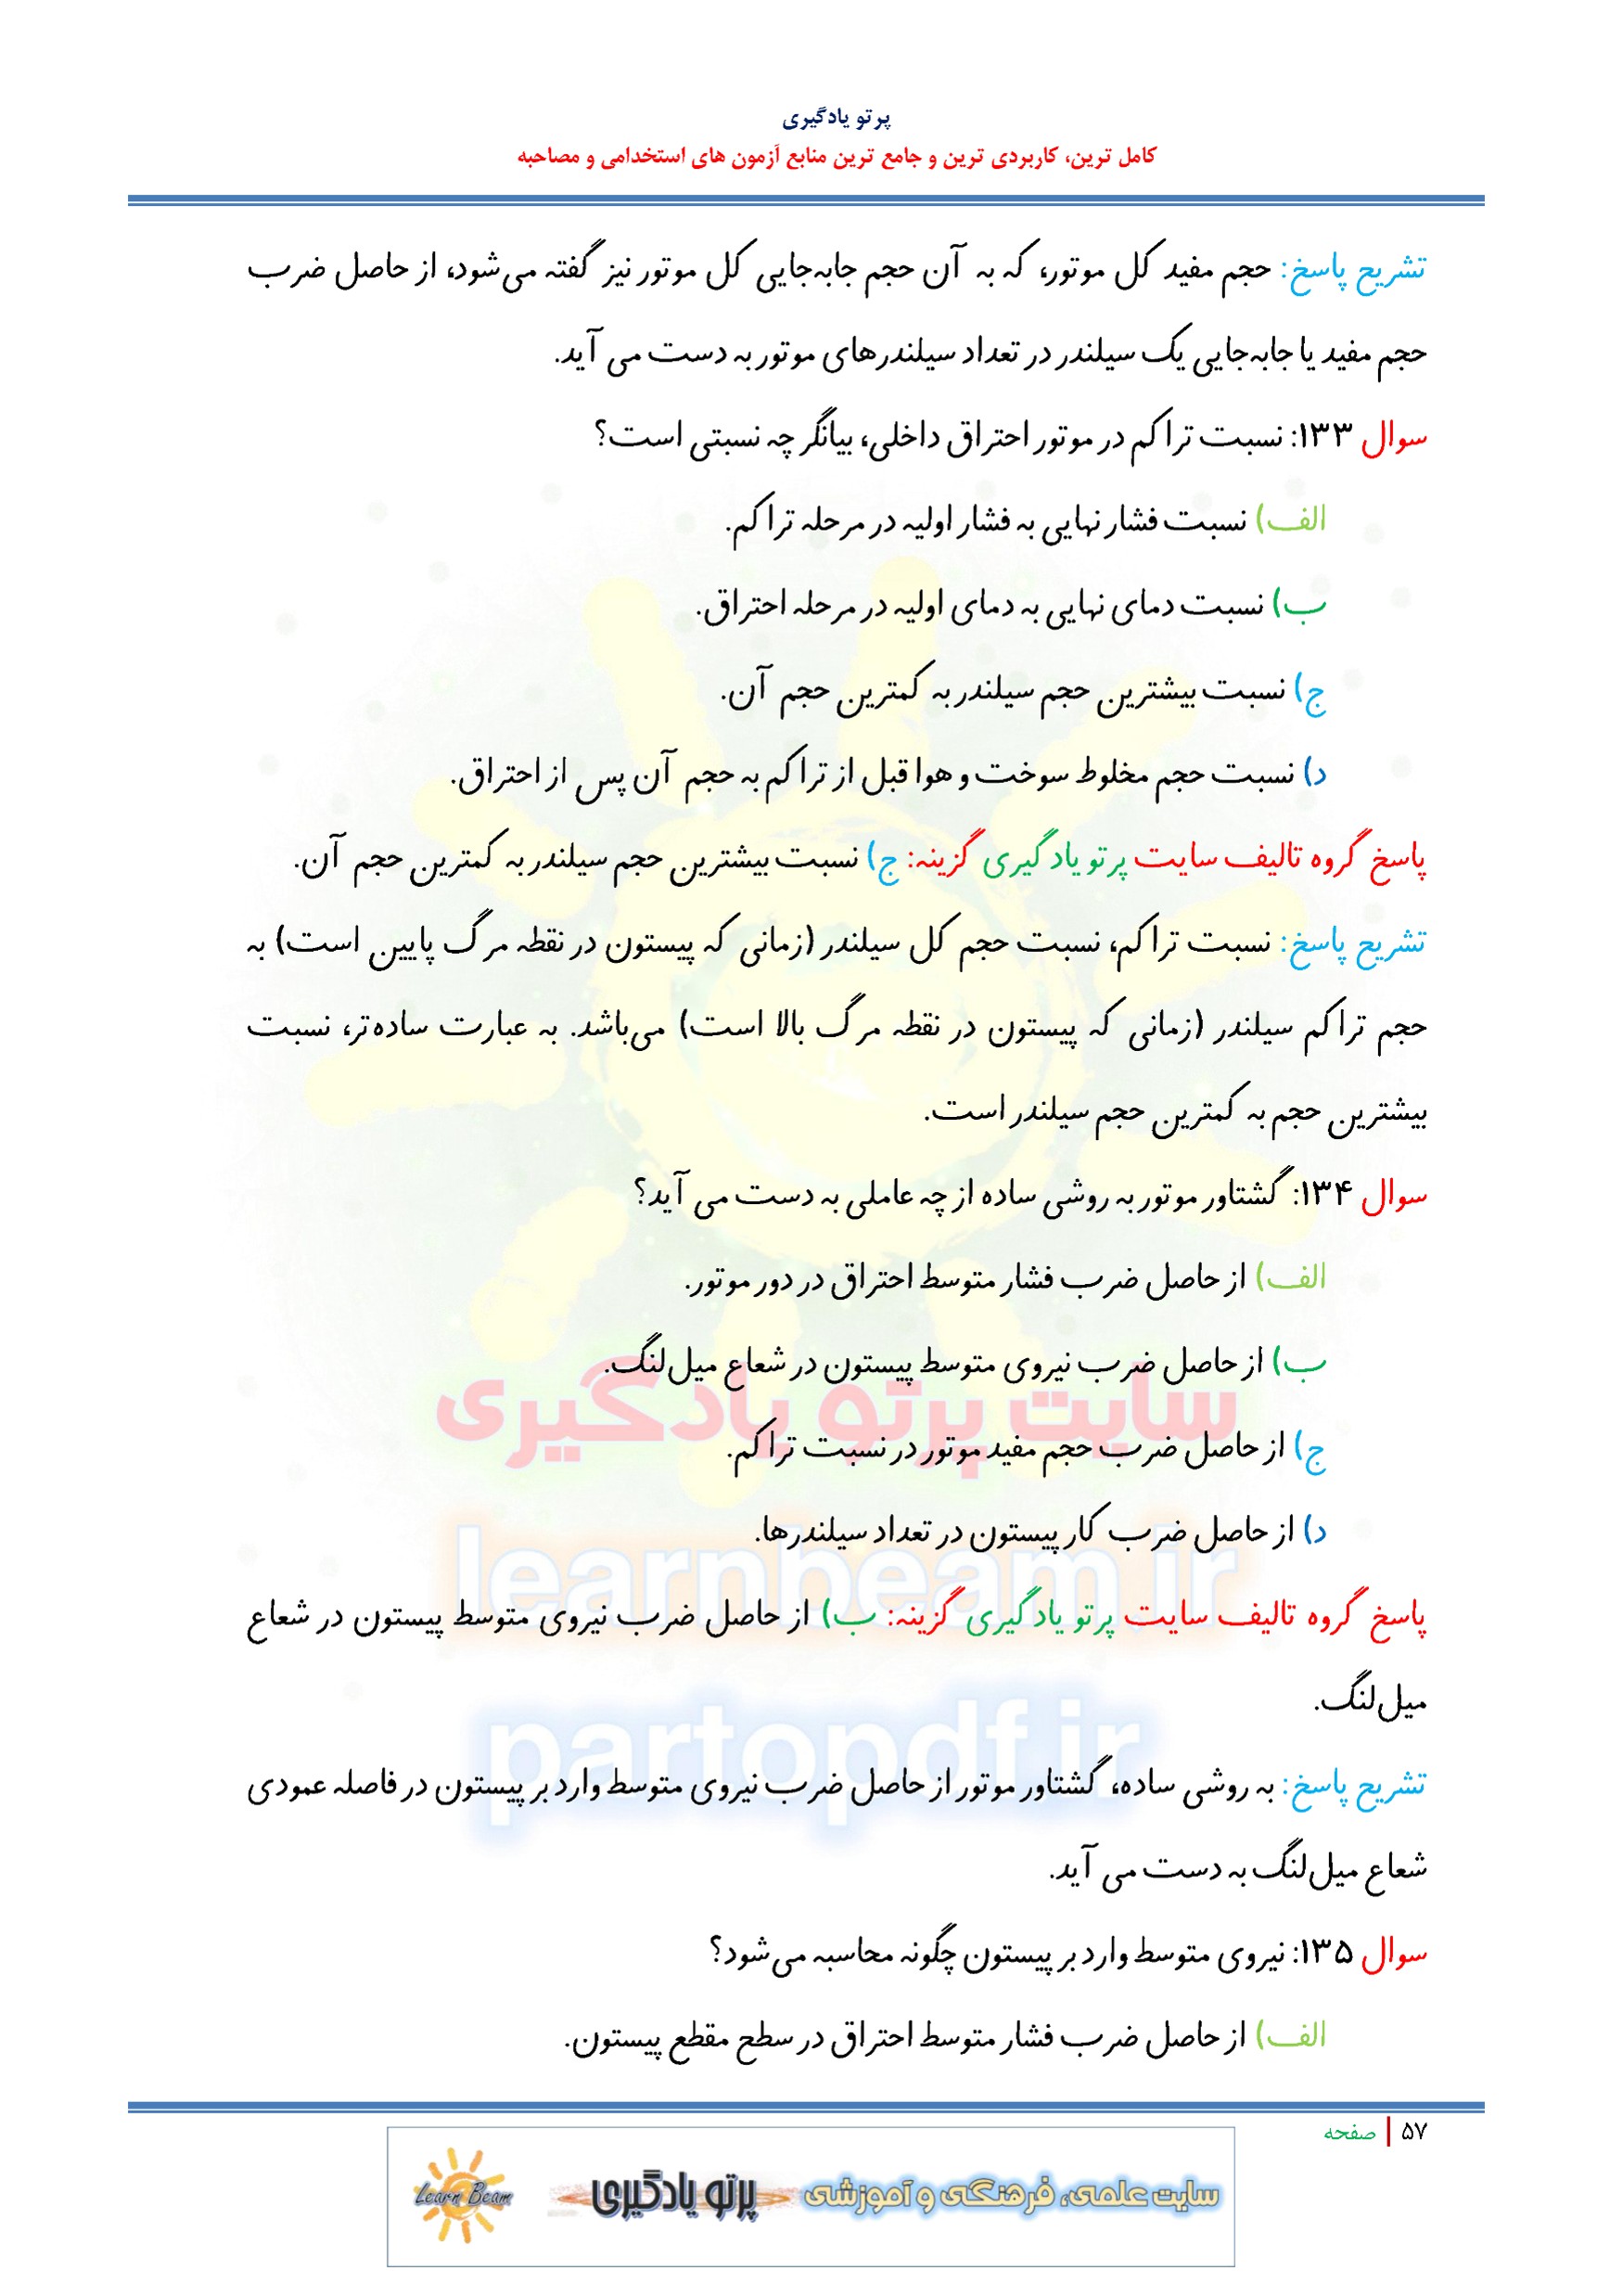 پرتو یادگیری
کامل ترین، کاربردی ترین و جامع ترین منابع آزمون های استخدامی و مصاحبه
تشریح پاسخ: حجم مفید کل موتور، که به آن حجم جابه‌جایی کل موتور نیز گفته می‌شود، از حاصل ضرب
حجم مفید یا جابه‌جایی یک سیلندر در تعداد سیلندرهای موتور به دست می آید.
سوال ۱۳۳: نسبت تراکم در موتور احتراق داخلی، بیانگر چه نسبتی است؟
الف) نسبت فشار نهایی به فشار اولیه در مرحله تراکم.
ب) نسبت دمای نهایی به دمای اولیه در مرحله احتراق.
ج) نسبت بیشترین حجم سیلندر به کمترین حجم آن.
د) نسبت حجم مخلوط سوخت و هوا قبل از تراکم به حجم آن پس از احتراق.
پاسخ گروه تالیف سایت پرتو یادگیری گزینه: ج) نسبت بیشترین حجم سیلندر به کمترین حجم آن.
تشریح پاسخ: نسبت تراکم، نسبت حجم کل سیلندر (زمانی که پیستون در نقطه مرگ پایین است) به
حجم تراکم سیلندر (زمانی که پیستون در نقطه مرگ بالا است) می‌باشد. به عبارت ساده‌تر، نسبت
بیشترین حجم به کمترین حجم سیلندر است.
سوال ۱۳۴: گشتاور موتور به روشی ساده از چه عاملی به دست می آید؟
الف) از حاصل ضرب فشار متوسط احتراق در دور موتور.
ب) از حاصل ضرب نیروی متوسط پیستون در شعاع میل‌لنگ.
سایت پرتو یادگیری
ج) از حاصل ضرب حجم مفید موتور در نسبت تراکم.
د) از حاصل ضرب کار پیستون در تعداد سیلندرها.
learnbeam.ir
پاسخ گروه تالیف سایت پرتو یادگیری گزینه: ب) از حاصل ضرب نیروی متوسط پیستون در شعاع
میل‌لنگ.
partopdf.ir
تشریح پاسخ: به روشی ساده، گشتاور موتور از حاصل ضرب نیروی متوسط وارد بر پیستون در فاصله عمودی
شعاع میل‌لنگ به دست می آید.
سوال ۱۳۵: نیروی متوسط وارد بر پیستون چگونه محاسبه می‌شود؟
الف) از حاصل ضرب فشار متوسط احتراق در سطح مقطع پیستون.
۵۷ | صفحه
سایت علمی، فرهنگی و آموزشی پرتو یادگیری Learn Beam